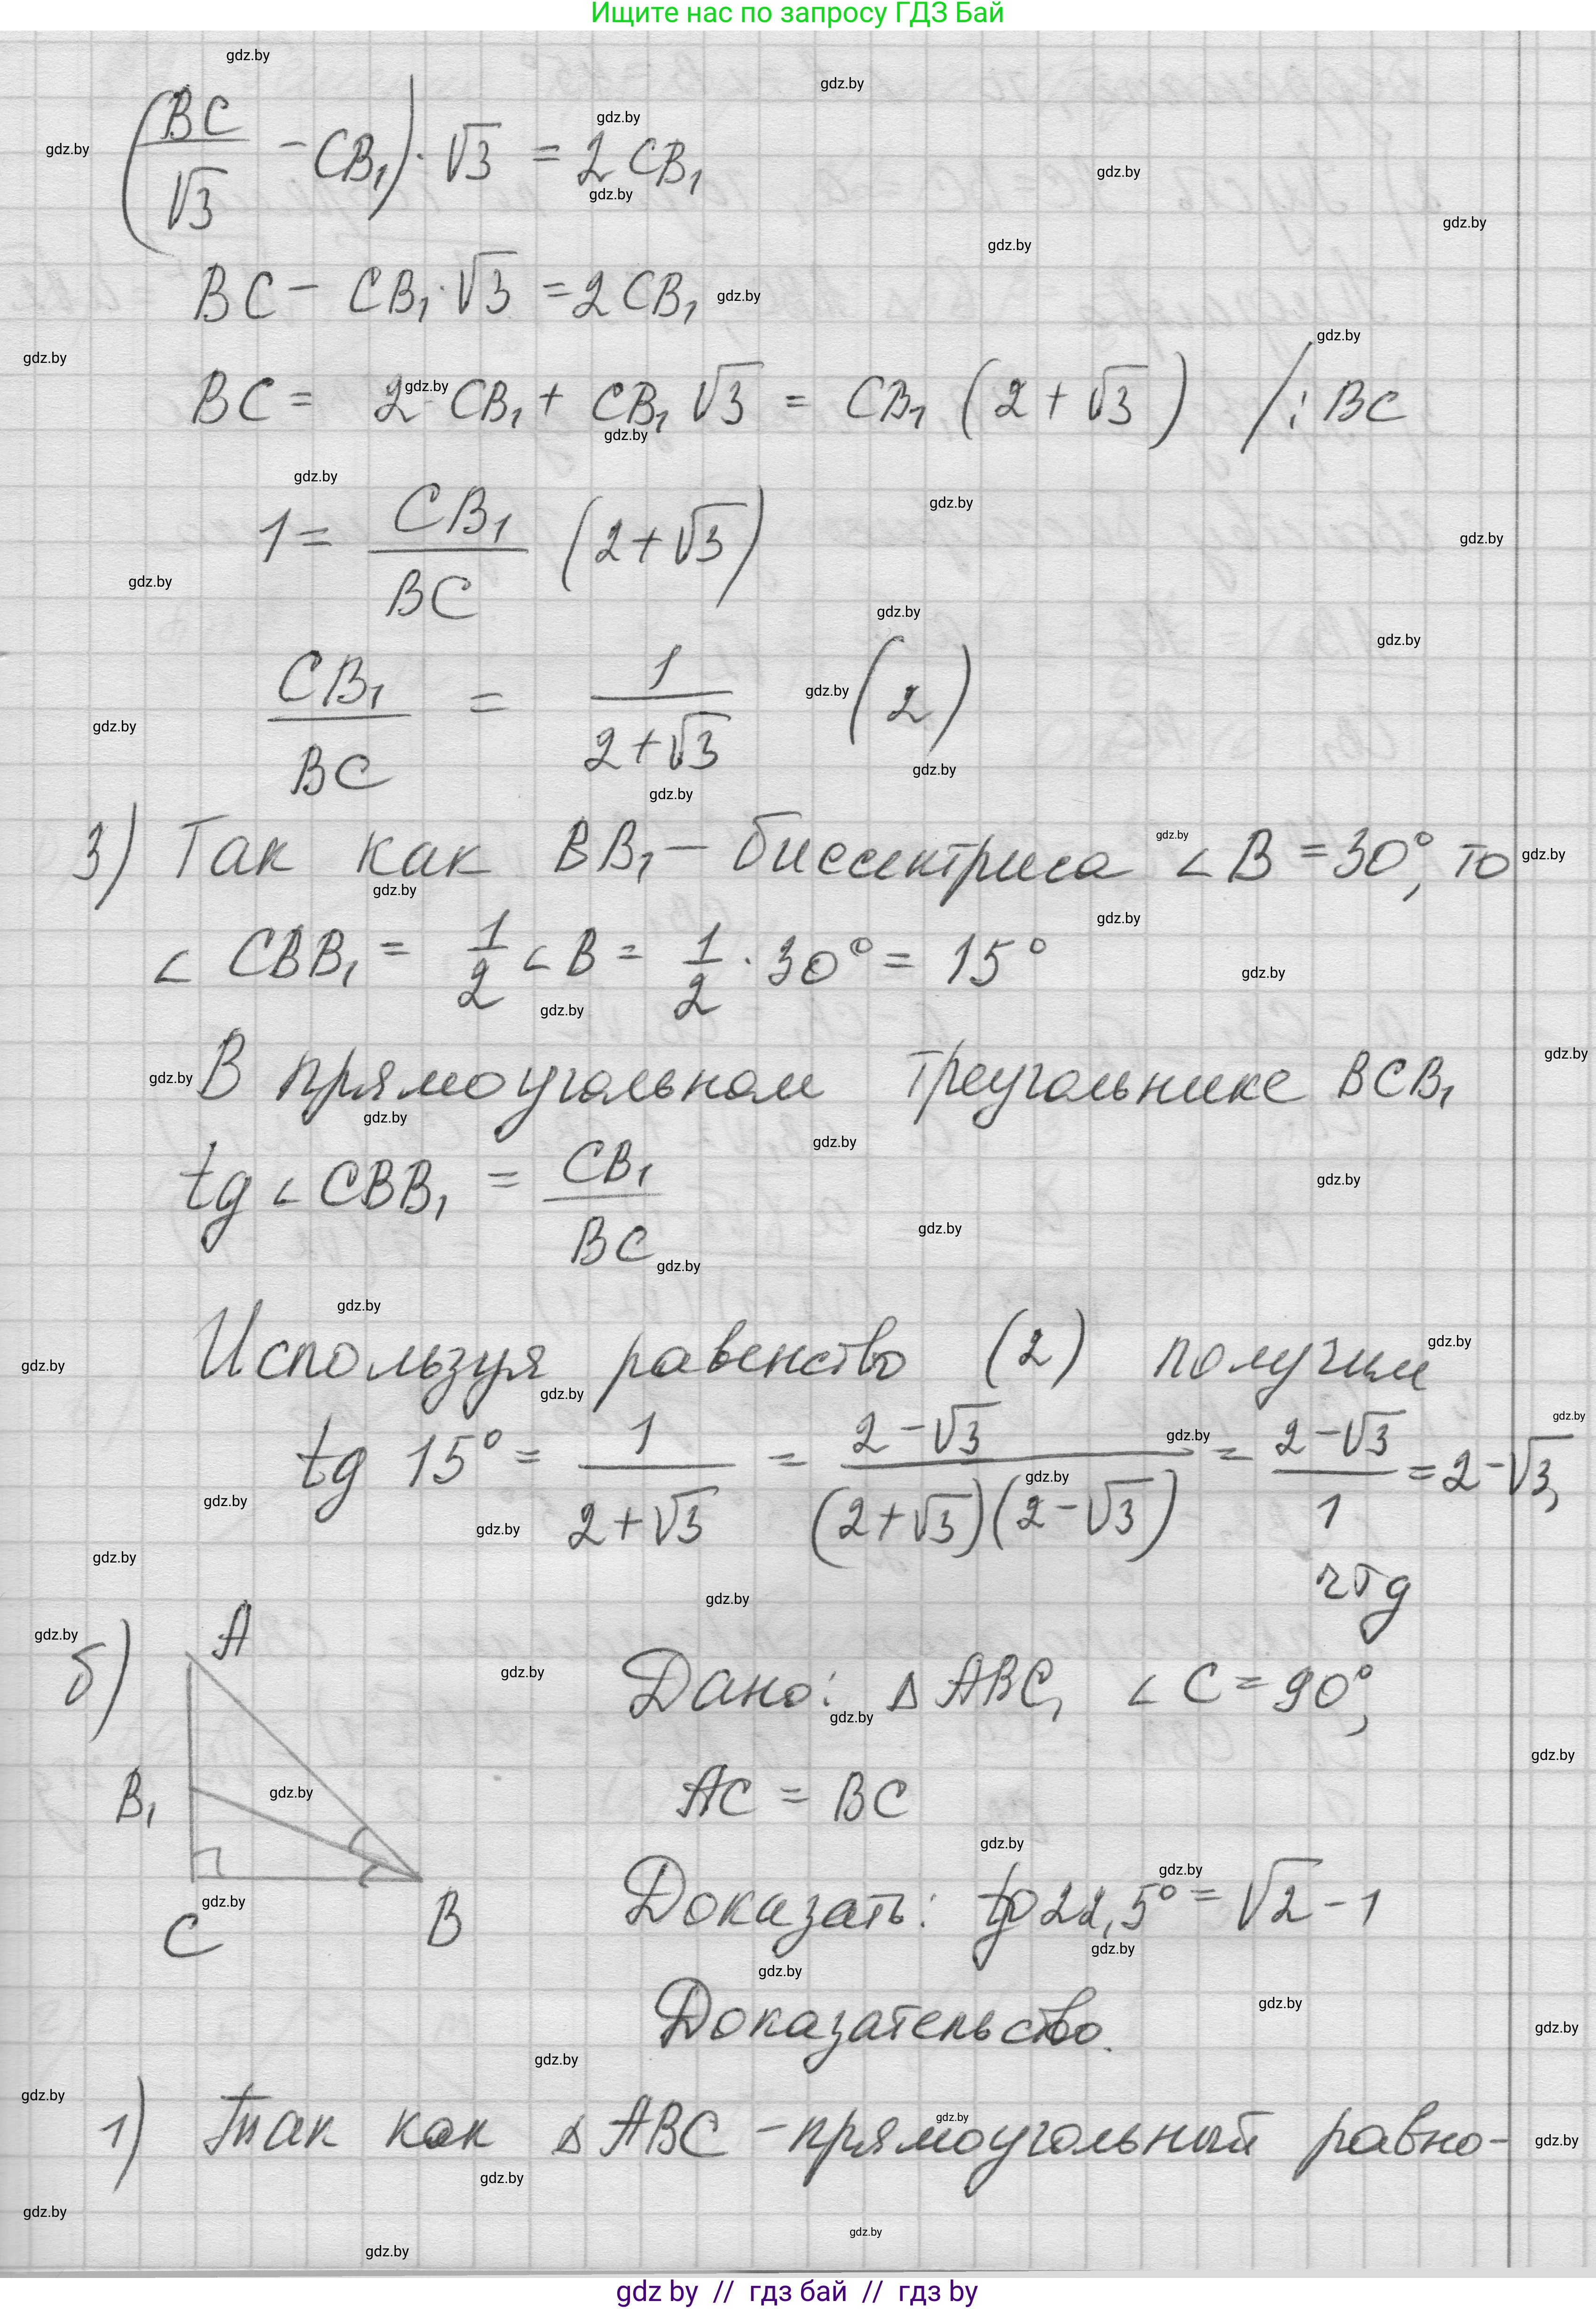 Ищите нас по запросу ГДЗ Бай
(BC/√3 - CB₁) · √3 = 2CB₁
BC - CB₁ · √3 = 2CB₁
BC = 2 CB₁ + CB₁ √3 = CB₁ (2 + √3) /: BC
1 = CB₁/BC (2 + √3)
CB₁/BC = 1/(2 + √3) (2)
3) Так как BB₁ - биссектриса ∠B = 30°, то
∠CBB₁ = 1/2 ∠B = 1/2 · 30° = 15°
В прямоугольном треугольнике BCB₁
tg ∠CBB₁ = CB₁/BC
Используя равенство (2) получим
tg 15° = 1/(2 + √3) = (2 - √3)/((2 + √3)(2 - √3)) = (2 - √3)/1 = 2 - √3,
чтд
б) A
B₁
C B
Дано: ΔABC, ∠C = 90°,
AC = BC
Доказать: tg 22,5° = √2 - 1
Доказательство.
1) Так как ΔABC - прямоугольный равно-
gdz by // гдз бай // гдз by